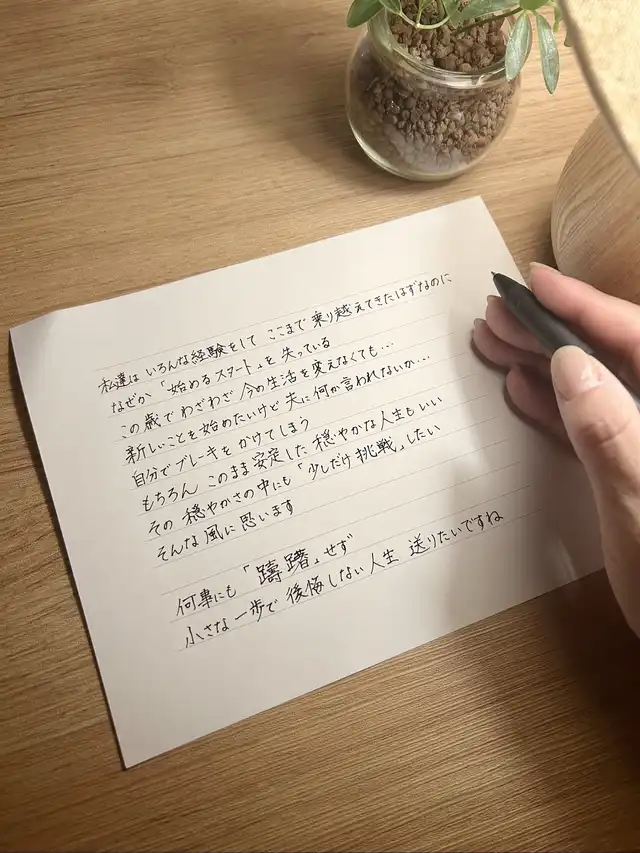 私達は いろんな経験をして ここまで 乗り越えてきたはずなのに
なぜか 「始めるスタート」を 失っている
この歳で わざわざ 今の生活を 変えなくても…
新しいことを 始めたいけど 夫に何か言われないか…
自分で ブレーキを かけてしまう
もちろん このまま 安定した 穏やかな人生もいい
その 穏やかさの中にも 「少しだけ 挑戦」したい
そんな風に思います
何事にも 「躊躇」せず
小さな 一歩で 後悔しない人生 送りたいですね